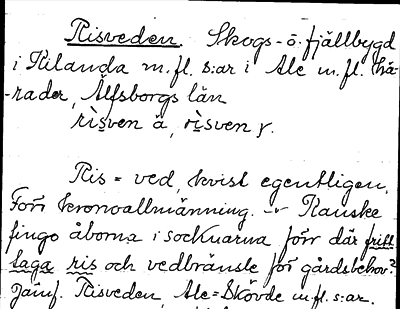 Risveden. Skogs- o. fjällbygd
i Kilanda m. fl. s:ar i Ale m. fl. hä-
-rader, Älfsborgs län
rìsven ä, rìsven
Ris = ved, kvist egentligen.
Förr kronoallmänning. Kanske
fingo åborna i socknarna förr där fritt
taga ris och vedbränsle för gårdsbehov?
Jämf. Risveden, Ale-Skövde m. fl. s:ar.